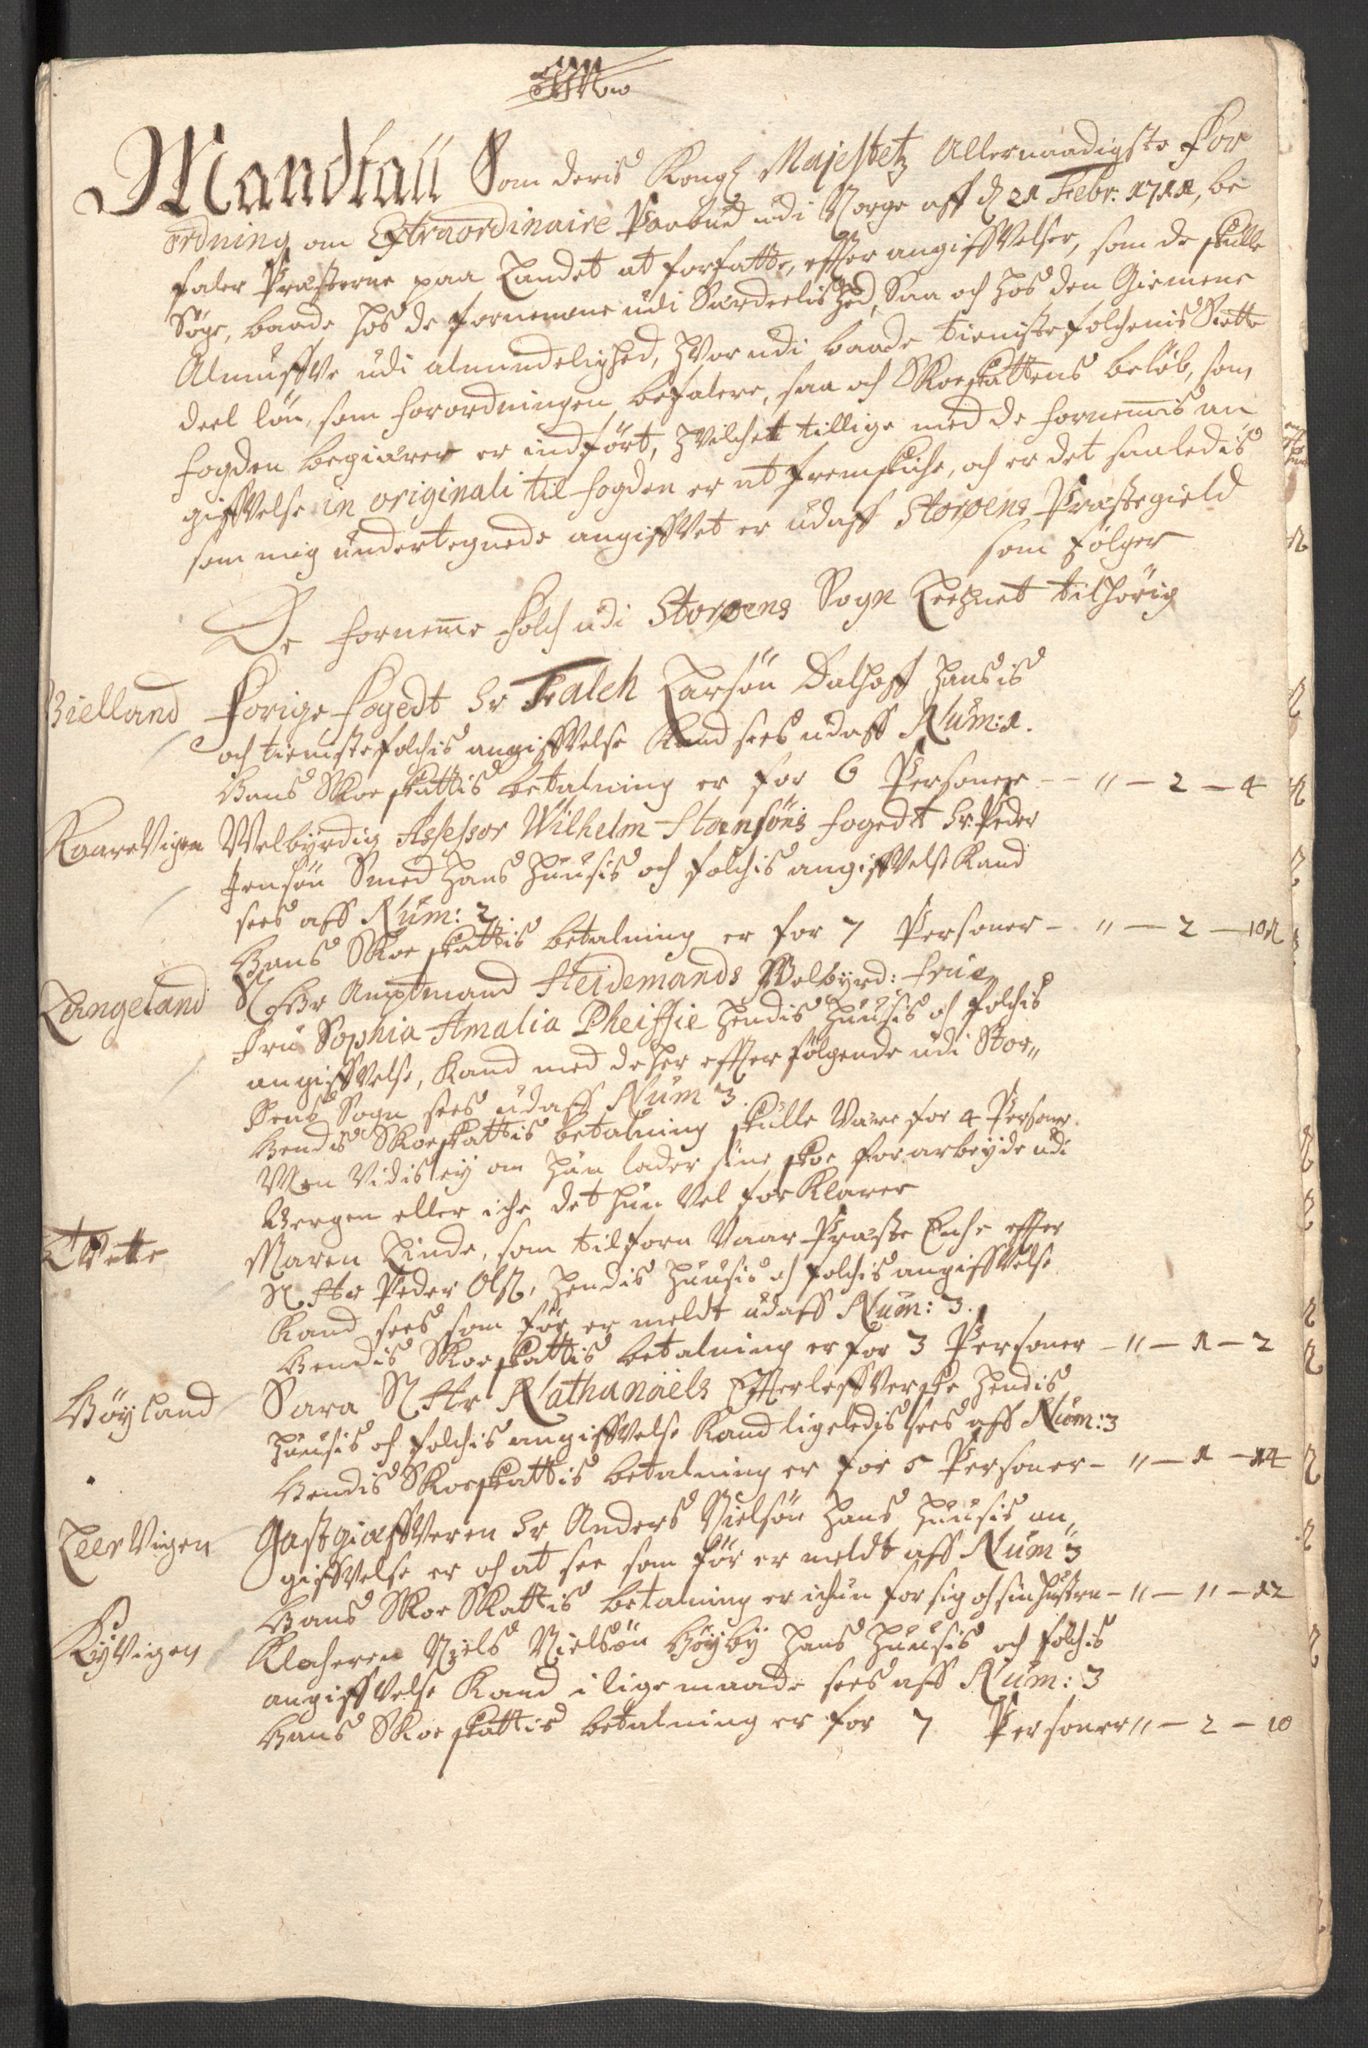 Mandtall Som deris Kongl Majestetz Allernaadigste For
ordning om Extraordinaire Paabud udi Norge aff d 21 Febr. 1711, be
faler Præsterne paa Landet at forfatte, effter angiffvelser, som de skulle
Søge, baade hos de fornemme udi Særdeelished, Saa och hos den Giemene
Almuffve udi almindelighed, hvorudi baade tienistefolchenis Siette
deel løn, som forordningen befaler, saa och Skoeskattens beløb, som
fogden begiærer er indført, hvilchet tillige med de fornemmis an
giffvelse in originali til fogden er at fremskiche, och er det saaledis
som mig undertegnede angiffvet er udaff Storøens Præstegield
som følger
De fornemme folch udi Storøens Sogn Leehnet tilhørig
Bielland Forige fogedt Sr Falch Larsøn Dalhoff hansis
och tienistefolchis angiffvelse Kand sees udaff Num: 1.
Hans Skoeskattis betalning er for 6 Personer - - " - 2 - 4
KaareVigen Welbyrdig Assessor Wilhelm Hansøns fogedt Sr Peder
Jensøn Smed hans huusis och folchis angiffvelse Kand
sees aff Num: 2
Hans Skoeskattis betalning er for 7 Personer - " - 2 - 10
Langeland Sl Hr Amptmand Heidemands Welbyrd: frue
Fru Sophia Amalia Pheiffie hendis huusis och folchis
angiffvelse, Kand med de her effter følgende udi Stor-
øens Sogn sees udaff Num 3.
Hendis Skoeskattis betalning skulle Være for 4 Personer.
Men Vidis ey om hun lader sine skoe forarbeyde udi
Bergen eller iche det hun Vel forKlarer
Tvette Maren Linde, som tilforn Vaar Præste Enche effter
Sl. Hr Peder Ols, hendis huusis och folchis angiffvelse
Kand sees som før er meldt udaff Num: 3.
Hendis Skoeskattis betalning er for 3 Personer - " - 1 - 2
Høyland Sara Sl Hr Nathanaels Efterleffverske hendis
huusis och folchis angiffvelse Kand ligeledis sees aff Num: 3
Hendis Skoeskattis betalning er for 5 Personer - " - 1 - 14
LeerVigen Gastgiæffveren Sr Anders Nielsøn hans huusis an
giffvelse er och at see som før er meldt aff Num 3
Hans Skoe Skattis betalning er ichun for sig och sin hustru - " - " - 12
KyVigen Klocheren Niels Nielsøn Høyby hans huusis och folchis
angiffvelse Kand i lige maade sees aff Num: 3
Hans Skoeskattis betalning er for 7 Personer " - 2 - 10